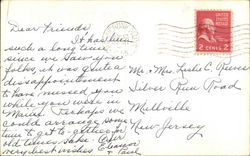 Dear Friends
It has been
such a long time
since we saw you
folks, it was quite
disappointment
to have missed you
while you were in
Maine. Perhaps we
could arrange some
time to get to-gether for
old times sake. Our
very best wishes Eleanor
UNITED STATES POSTAGE
2 CENTS 2
Mr. & Mrs. Leslie C. Reeves
Silver Run Road
Millville
New Jersey